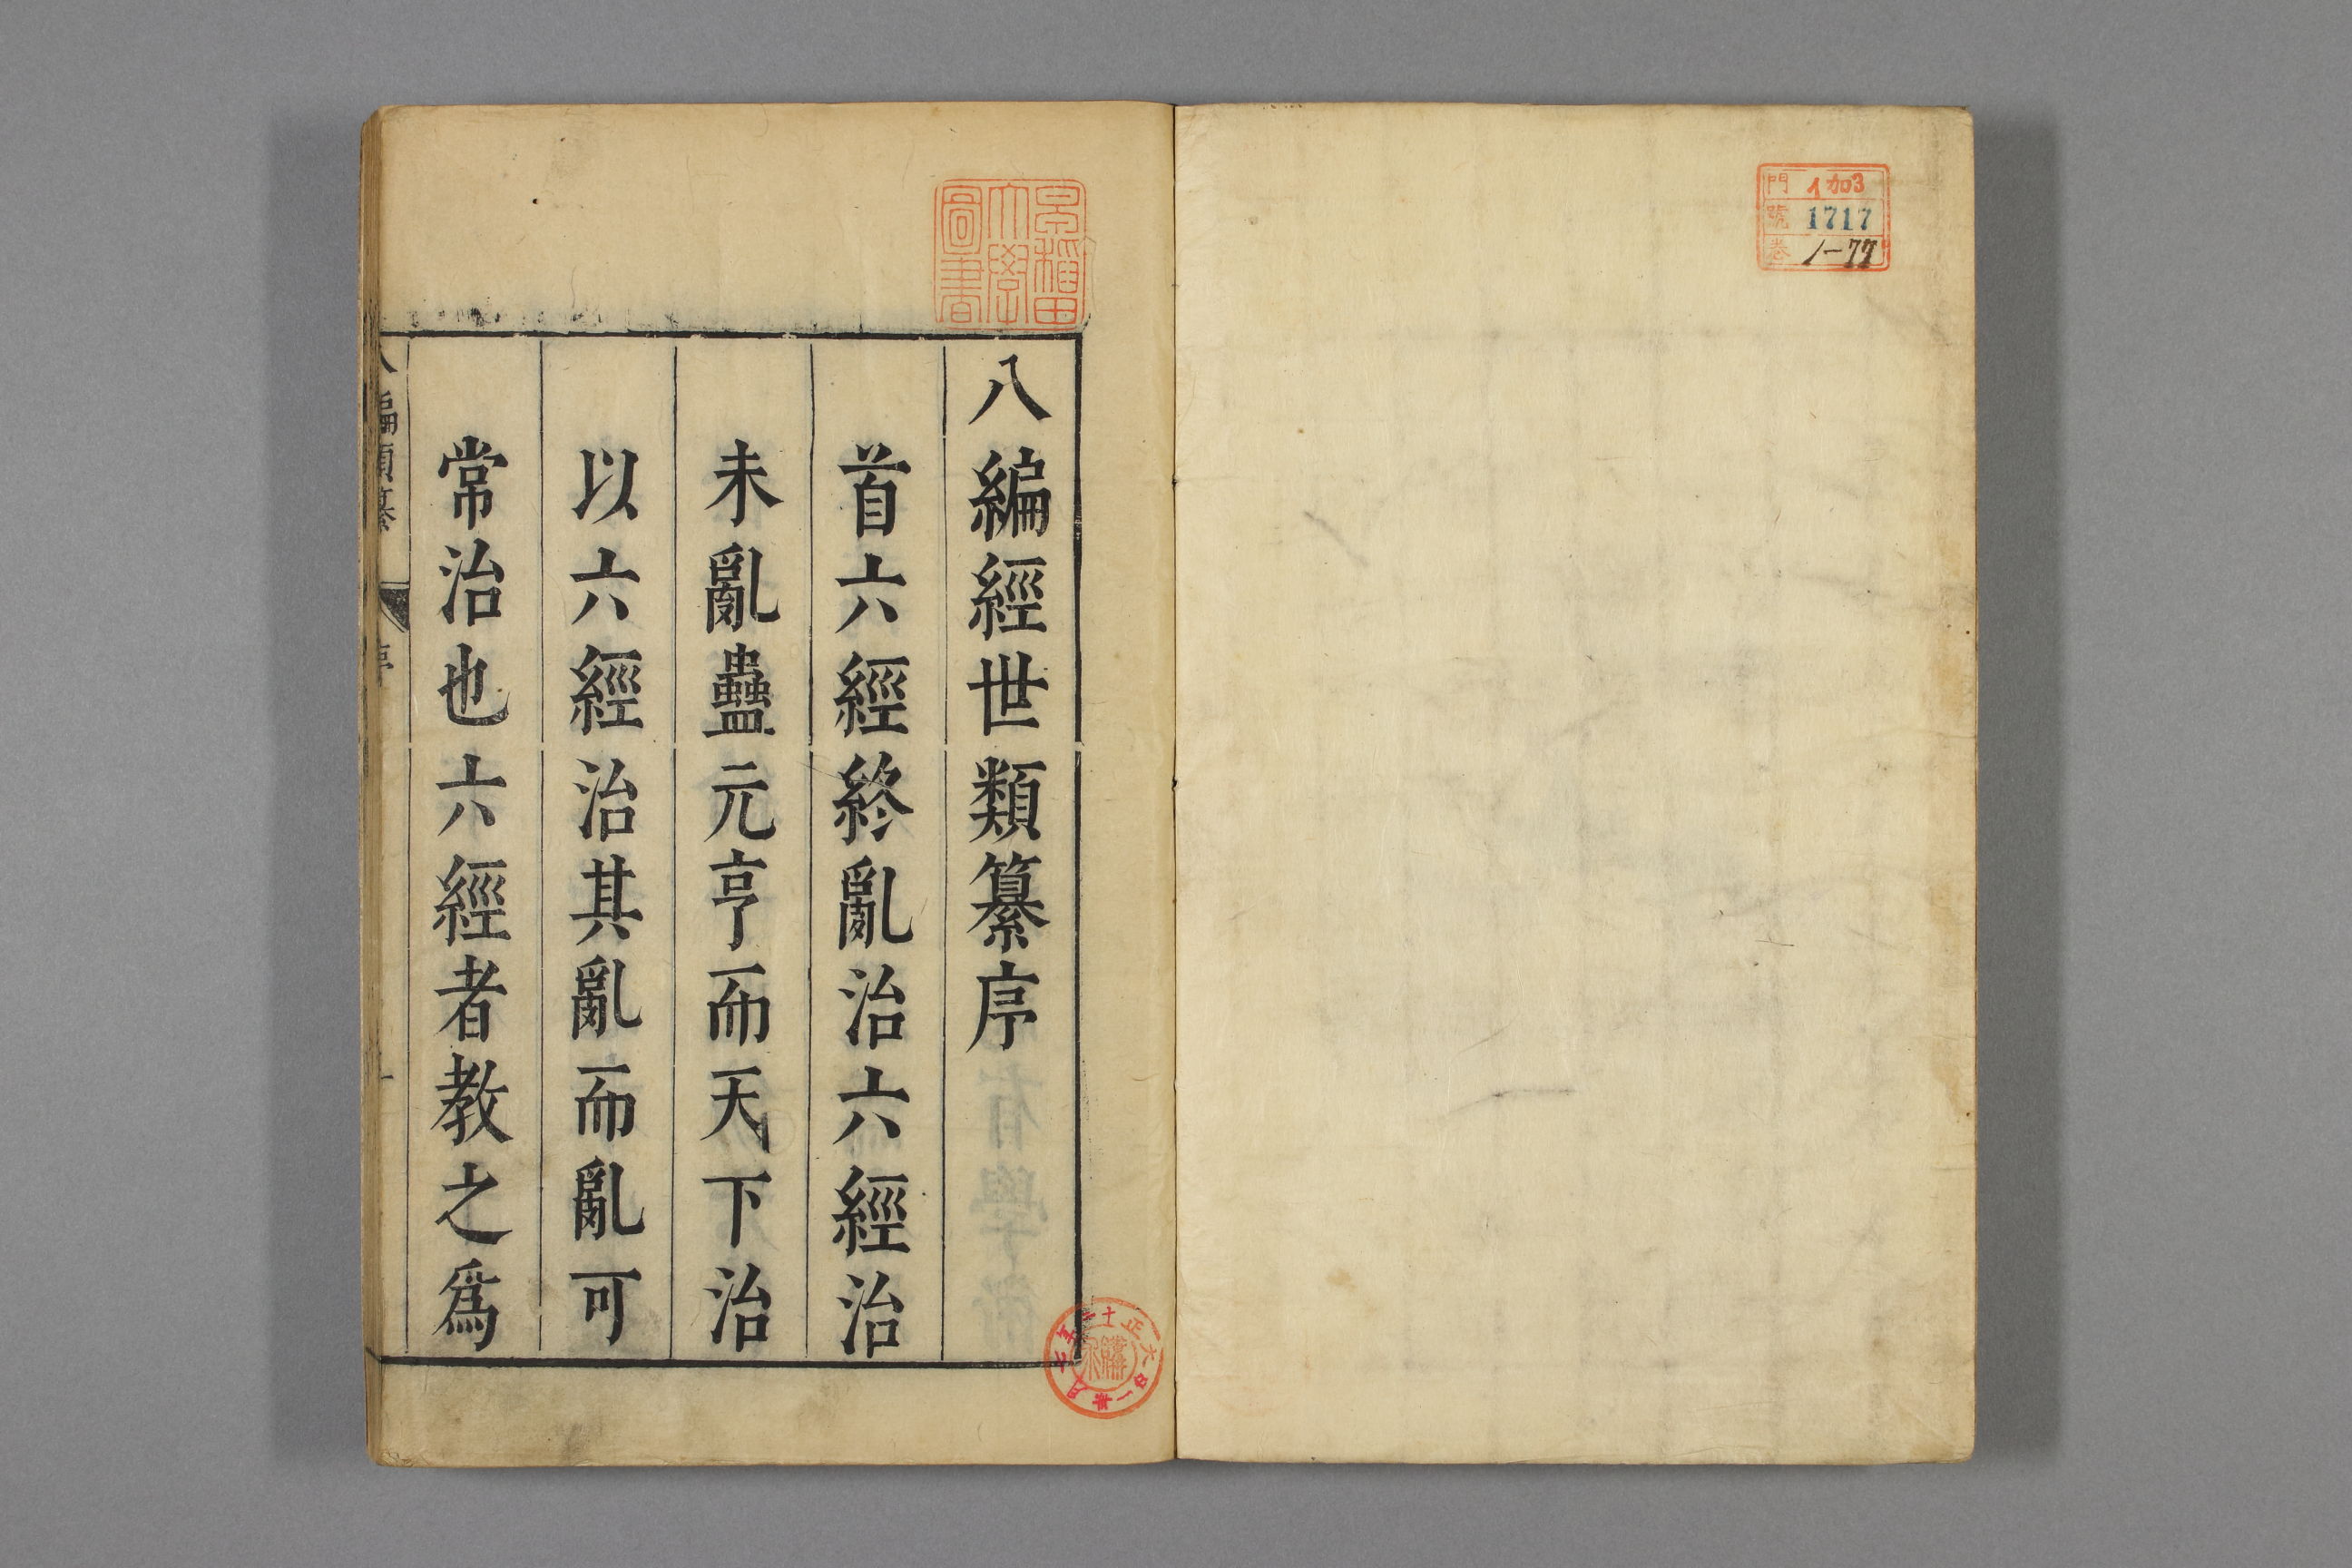 門 イ加3
號 1717
巻 1-77
早稲田
大學
圖書
八編經世類纂序
首六經終亂治六經治
未亂蠱元亨而天下治
以六經治其亂而亂可
常治也六經者教之爲
編類纂
序